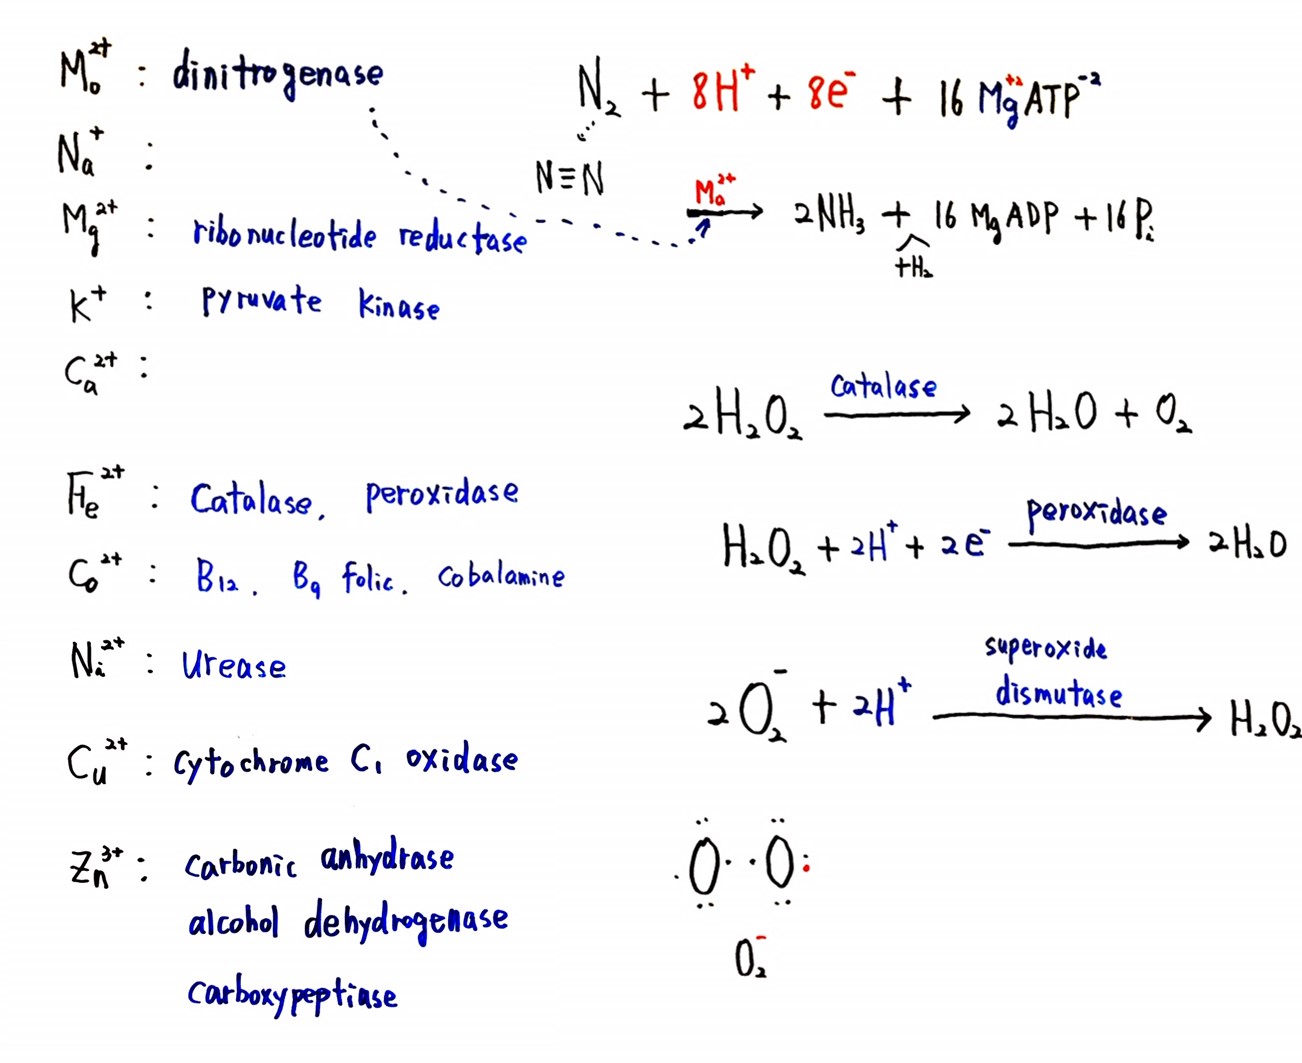 Mo²⁺ : dinitrogenase
Na⁺ :
Mg²⁺ : ribonucleotide reductase
K⁺ : pyruvate kinase
Ca²⁺ :
Fe²⁺ : Catalase, peroxidase
Co²⁺ : B₁₂, B₉ folic, Cobalamine
Ni²⁺ : Urease
Cu²⁺ : Cytochrome C₁ oxidase
Zn³⁺ : Carbonic anhydrase
alcohol dehydrogenase
Carboxypeptiase
N₂ + 8H⁺ + 8e⁻ + 16 Mg⁺²ATP⁻²
N≡N
Ma²⁺
→ 2NH₃ + 16 MgADP + 16Pi
+H₂
Catalase
2H₂O₂ → 2H₂O + O₂
peroxidase
H₂O₂ + 2H⁺ + 2e⁻ → 2H₂O
superoxide
dismutase
2O₂⁻ + 2H⁺ → H₂O₂
O O
O₂⁻